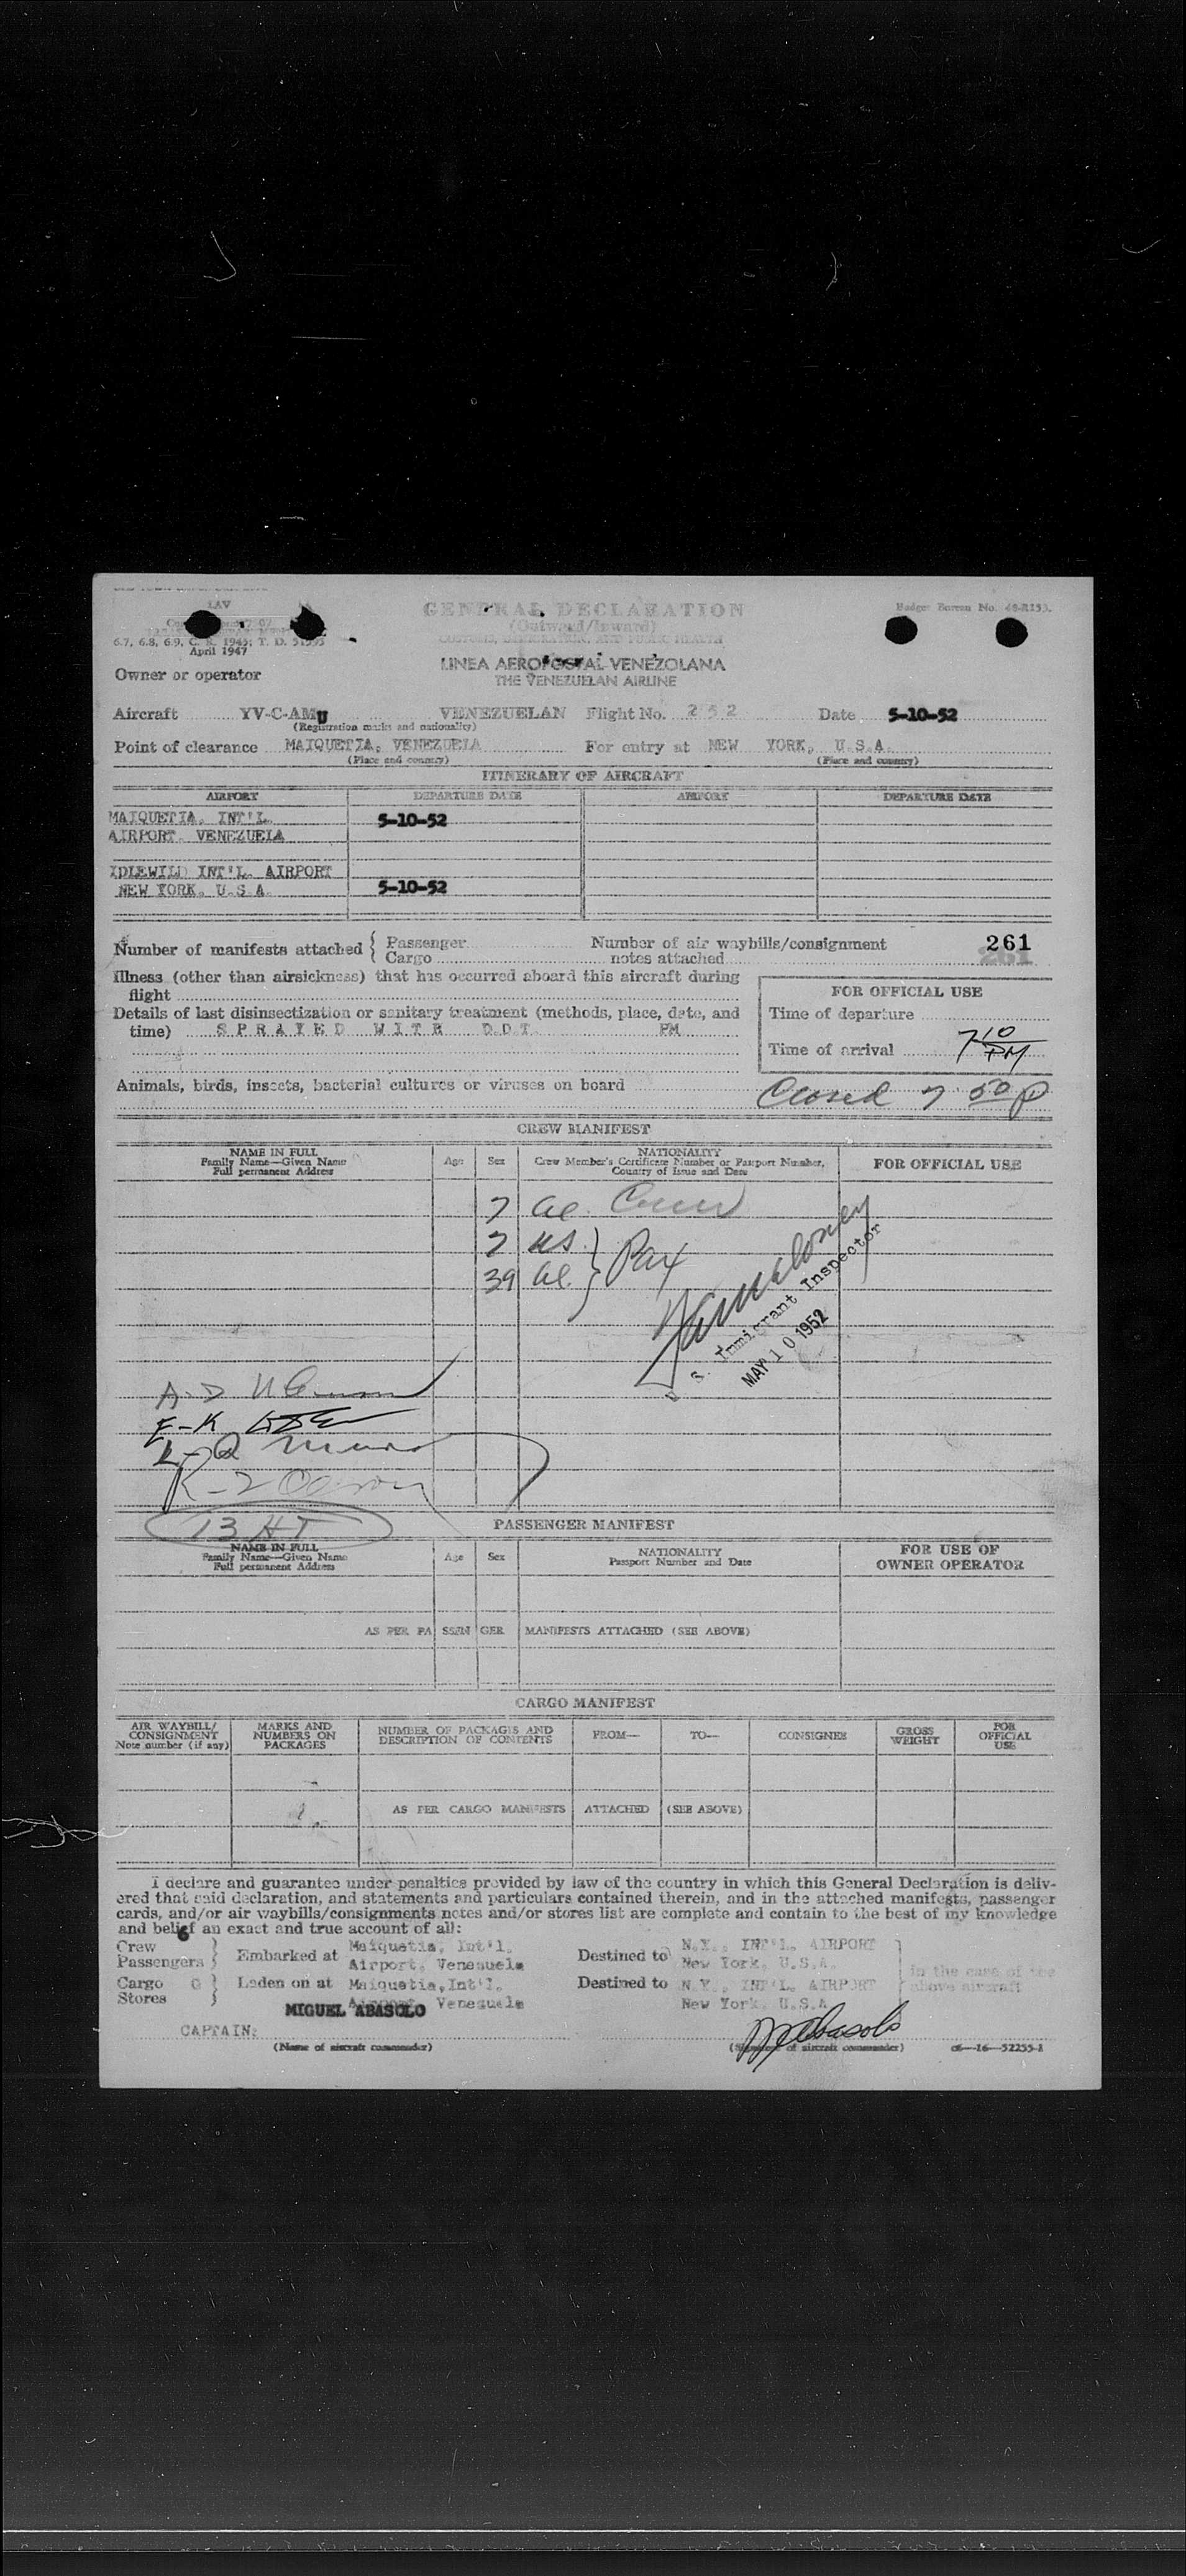 LAV
GENERAL DECLARATION
(Outward/Inward)
Budget Bureau No. 48-R153.
CUSTOMS, IMMIGRATION, AND PUBLIC HEALTH
6.7, 6.8, 6.9, C. R. 1945; T. D. 51595
April 1947
LINEA AEROPOSTAL VENEZOLANA
THE VENEZUELAN AIRLINE
Owner or operator
Aircraft YV-C-AMU VENEZUELAN Flight No. 252 Date 5-10-52
(Registration marks and nationality)
Point of clearance MAIQUETIA, VENEZUELA For entry at NEW YORK, U.S.A.
(Place and country) (Place and country)
ITINERARY OF AIRCRAFT
AIRPORT DEPARTURE DATE AIRPORT DEPARTURE DATE
MAIQUETIA, INT'L. 5-10-52
AIRPORT. VENEZUELA
IDLEWILD INT'L. AIRPORT
NEW YORK. U.S.A. 5-10-52
Number of manifests attached { Passenger Number of air waybills/consignment 261
Cargo notes attached 261
Illness (other than airsickness) that has occurred aboard this aircraft during
flight
FOR OFFICIAL USE
Details of last disinsectization or sanitary treatment (methods, place, date, and
time) SPRAYED WITH D.D.T. PM
Time of departure
Time of arrival 7 10 PM
Animals, birds, insects, bacterial cultures or viruses on board
Closed 7 50 P
CREW MANIFEST
NAME IN FULL
Family Name—Given Name
Full permanent Address
Age Sex
NATIONALITY
Crew Member's Certificate Number or Passport Number,
Country of Issue and Date
FOR OFFICIAL USE
7 al Crew
7 US } Pax
39 al
U. S. Immigrant Inspector
MAY 10 1952
A-D
E-K
L-Q
R-Z
13 HT
PASSENGER MANIFEST
NAME IN FULL
Family Name—Given Name
Full permanent Address
Age Sex
NATIONALITY
Passport Number and Date
FOR USE OF
OWNER OPERATOR
AS PER PASSENGER MANIFESTS ATTACHED (SEE ABOVE)
CARGO MANIFEST
AIR WAYBILL/
CONSIGNMENT
Note number (if any)
MARKS AND
NUMBERS ON
PACKAGES
NUMBER OF PACKAGES AND
DESCRIPTION OF CONTENTS
FROM— TO— CONSIGNEE
GROSS
WEIGHT
FOR
OFFICIAL
USE
AS PER CARGO MANIFESTS ATTACHED (SEE ABOVE)
I declare and guarantee under penalties provided by law of the country in which this General Declaration is deliv-
ered that said declaration, and statements and particulars contained therein, and in the attached manifests, passenger
cards, and/or air waybills/consignments notes and/or stores list are complete and contain to the best of my knowledge
and belief an exact and true account of all:
Crew Maiquetia, Int'l. N.Y., INT'L. AIRPORT
Passengers } Embarked at Airport, Venezuela Destined to New York, U.S.A.
in the case of the
Cargo G } Laden on at Maiquetia, Int'l. Destined to N.Y., INT'L. AIRPORT above aircraft
Stores Airport, Venezuela New York, U.S.A.
MIGUEL ABASOLO
CAPTAIN: MAbasolo
(Name of aircraft commander) (Signature of aircraft commander) 16—52255-1